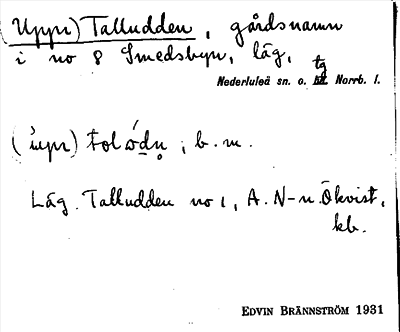 (Uppr) Talludden, gårdsnamn
i no 8 Smedsbyn, läg,
Nederluleå sn. o. tg Norrb. l.
b. m.
Läg. Talludden no 1, A. N-n. Ökvist,
kb.
EDVIN BRÄNNSTRÖM 1931